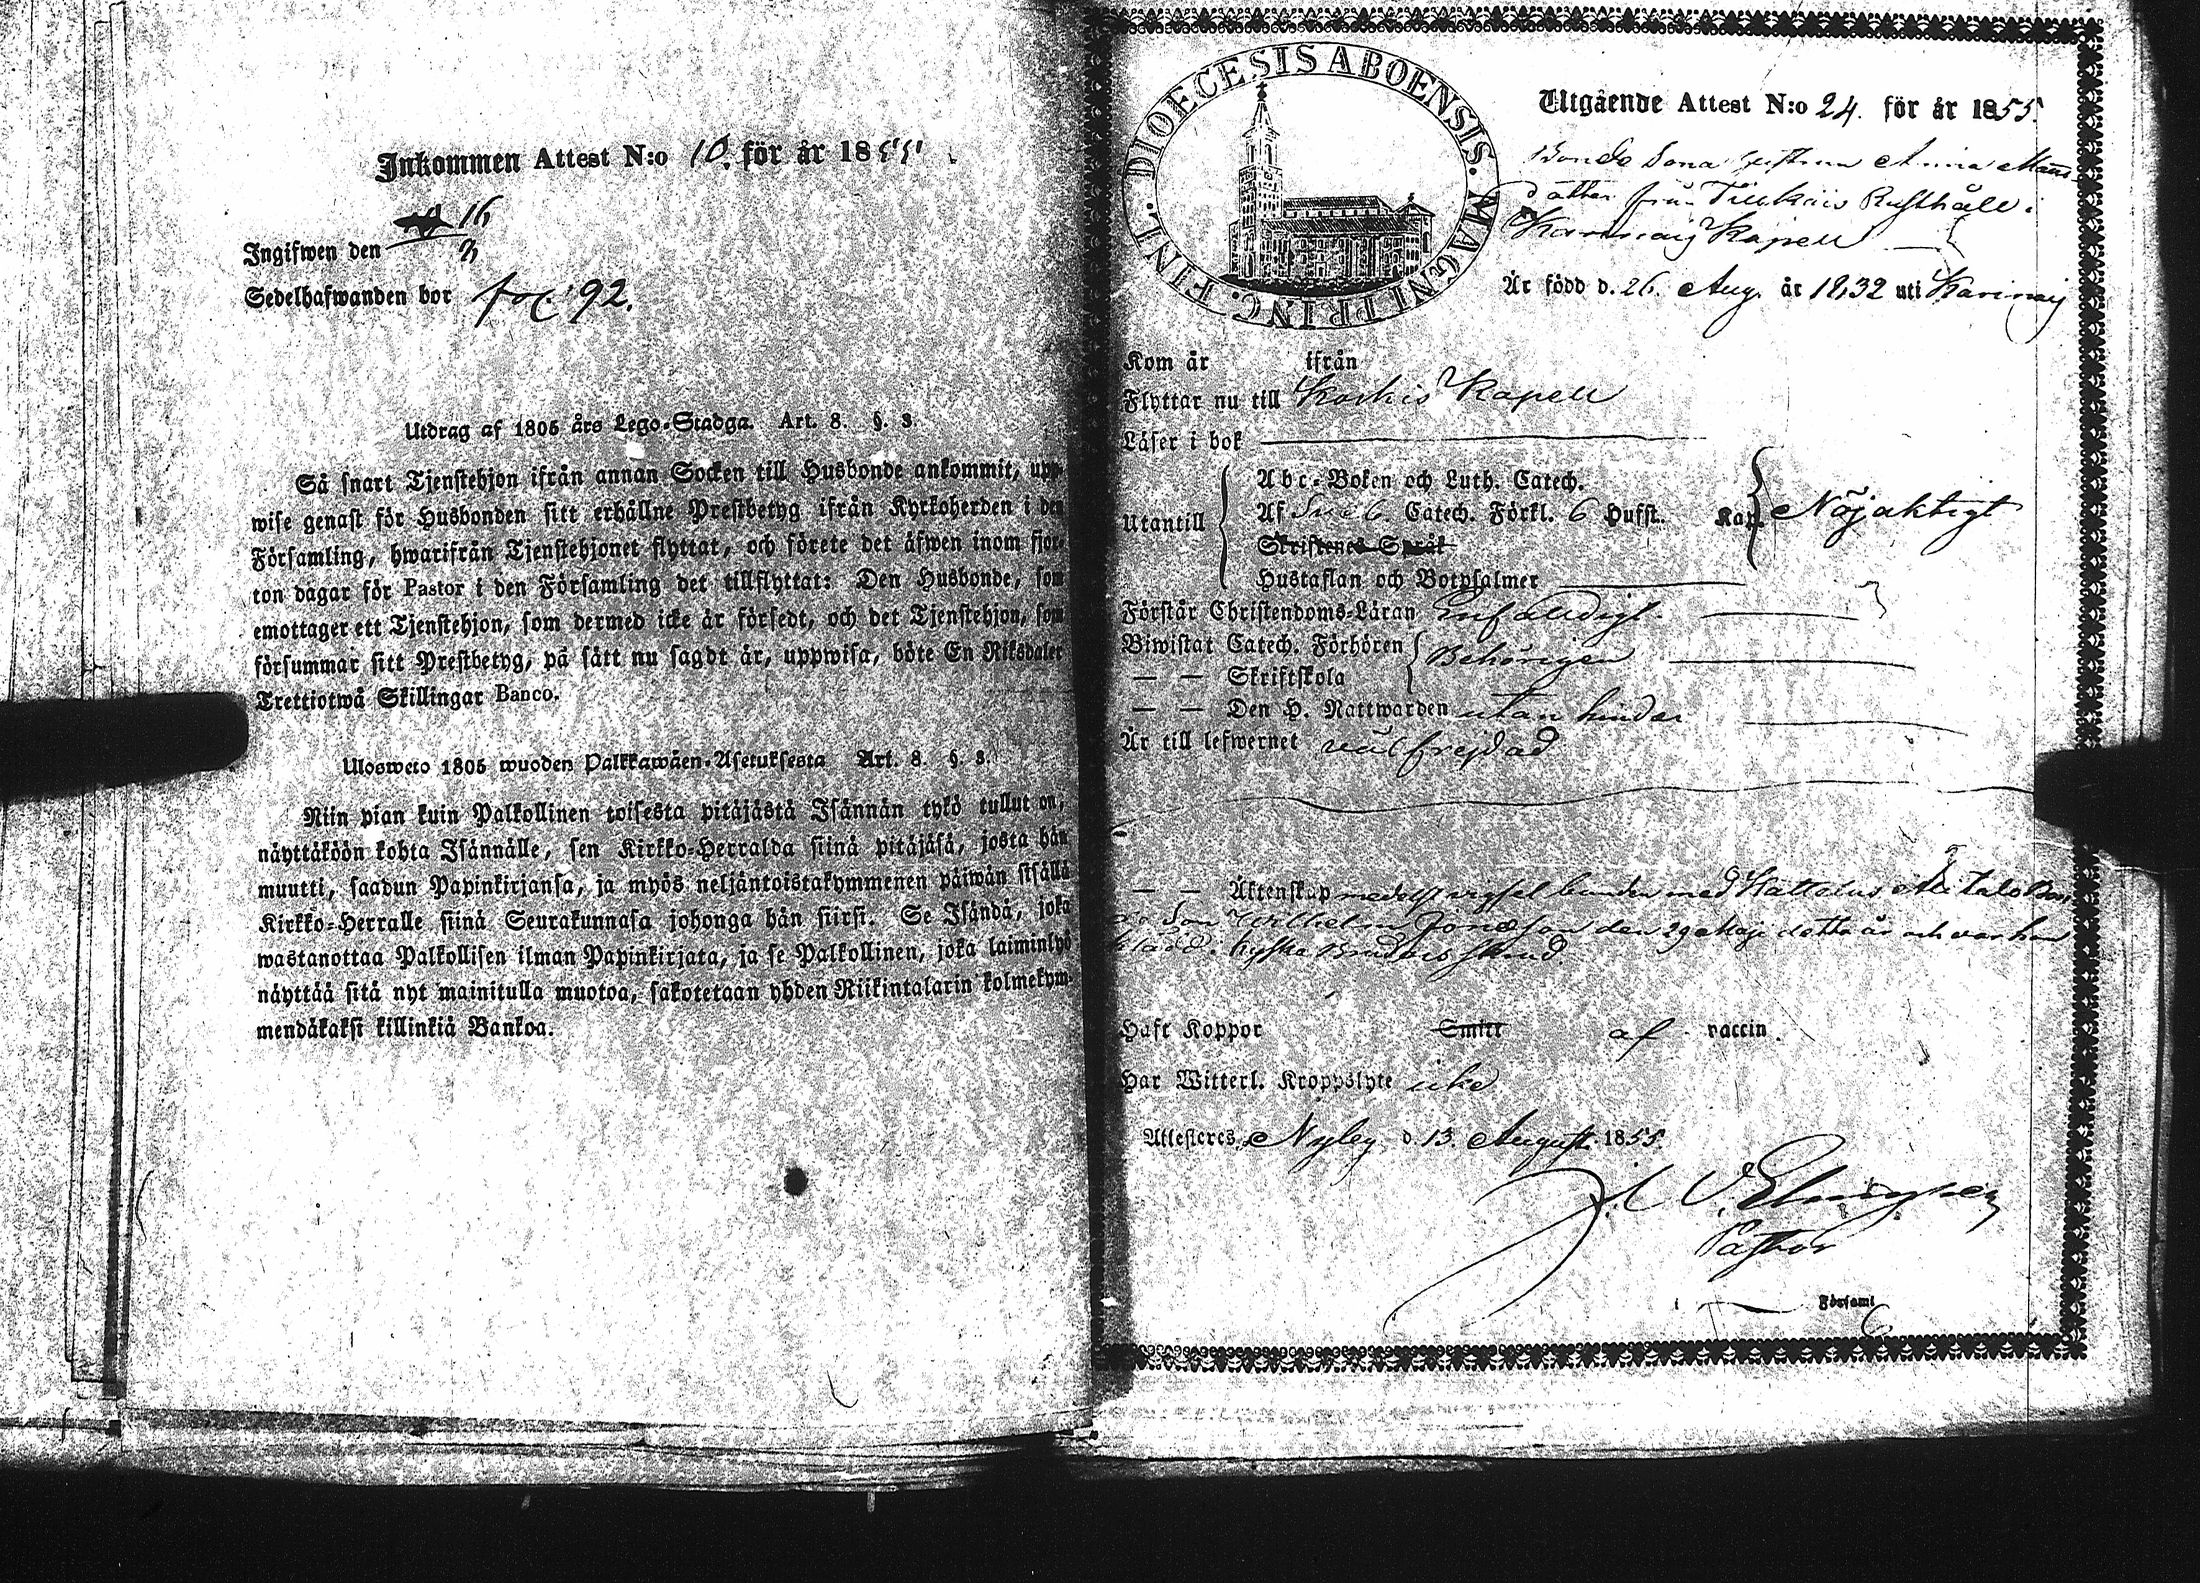 Inkommen Attest N:o 10. för år 1855.
16
Ingifwen den
Sedelhafwanden bor fol. 92.
Utdrag af 1805 års Lego-Stadga. Art. 8. §. 3.
Så snart Tjenstehjon ifrån annan Socken till Husbonde ankommit, upp-
wise genast för Husbonden sitt erhållne Prestbetyg ifrån Kyrkoherden i den
Församling, hwarifrån Tjenstehjonet flyttat, och förete det äfwen inom fjor-
ton dagar för Pastor i den Församling det tillflyttat: Den Husbonde, som
emottager ett Tjenstehjon, som dermed icke är försedt, och det Tjenstehjon, som
försummar sitt Prestbetyg, på sätt nu sagdt är, uppwisa, böte En Riksdaler
Trettiotwå Skillingar Banco.
Ulosweto 1805 wuoden Palkkawäen-Asetuksesta Art. 8. §. 3.
Niin pian kuin Palkollinen toisesta pitäjästä Isännän tykö tullut on,
näyttäköön kohta Isännälle, sen Kirkko-Herralda siinä pitäjäsä, josta hän
muutti, saadun Papinkirjansa, ja myös neljäntoistakymmenen päiwän sisällä
Kirkko-Herralle siinä Seurakunnasa johonga hän siirsi. Se Isändä, joka
wastanottaa Palkollisen ilman Papinkirjata, ja se Palkollinen, joka laiminlyö
näyttää sitä nyt mainitulla muotoa, sakotetaan yhden Riikintalarin kolmekym-
mendäkaksi killinkiä Bankoa.
FINL. DIOECESIS ABOENSIS. MAGNI PRINC.
Utgående Attest N:o 24. för år 1855.
Bonde Sona hustrun Anna Mats-
dotter från Rusthåll i
Karinais Kapell
Är född d. 26. Aug. år 1832 uti Karinais
Kom år ifrån
Flyttar nu till Koskis Kapell
Läser i bok
Utantill
Abc-Boken och Luth. Catech.
Af Sveb. Catech. Förkl. 6 Hufst. Kap. Nöjaktigt
Skriftenes Språk
Hustaflan och Botpsalmer
Förstår Christendoms-Läran Enfaldigt.
Biwistat Catech. Förhören Behörigen
— — Skriftskola
— — Den H. Nattwarden utan hinder
Är till lefwernet välfrejdad
— — Äktenskap medelst vigsel bunden med
Son Wilhelm den 29 Maji detta år och var hon
klädd i
Haft Koppor Smitt af vaccin.
Har Witterl. Kroppslyte icke
Attesteres Nyby d. 13. August. 1855.
Pastor
i Församl.